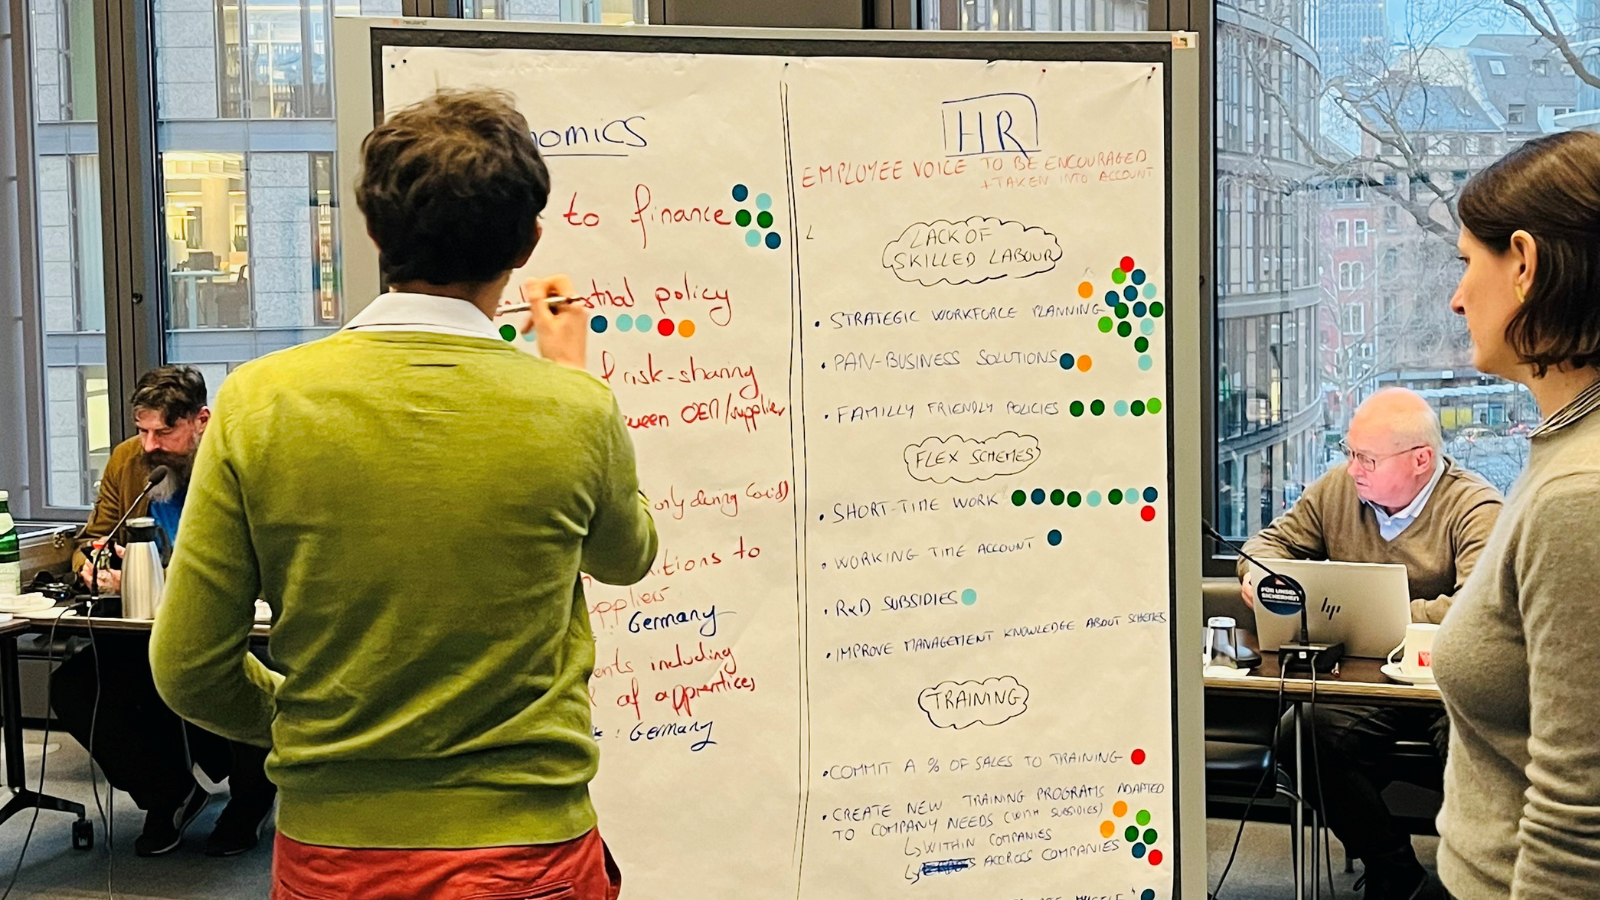 neuland
nomics
to finance
strial policy
f risk-sharing
ween OEM/supplier
only during Covid)
itions to
ppliers
: Germany
ents including
of apprentices
: Germany
HR
EMPLOYEE VOICE TO BE ENCOURAGED
+TAKEN INTO ACCOUNT
LACK OF
SKILLED LABOUR
• STRATEGIC WORKFORCE PLANNING
• PAN-BUSINESS SOLUTIONS
• FAMILLY FRIENDLY POLICIES
FLEX SCHEMES
• SHORT-TIME WORK
• WORKING TIME ACCOUNT
• R&D SUBSIDIES
• IMPROVE MANAGEMENT KNOWLEDGE ABOUT SCHEMES
TRAINING
• COMMIT A % OF SALES TO TRAINING
• CREATE NEW TRAINING PROGRAMS ADAPTED
TO COMPANY NEEDS (WITH SUBSIDIES)
↳ WITHIN COMPANIES
↳ ACCROSS COMPANIES
FÜR UNSERE
SICHERHEIT
hp